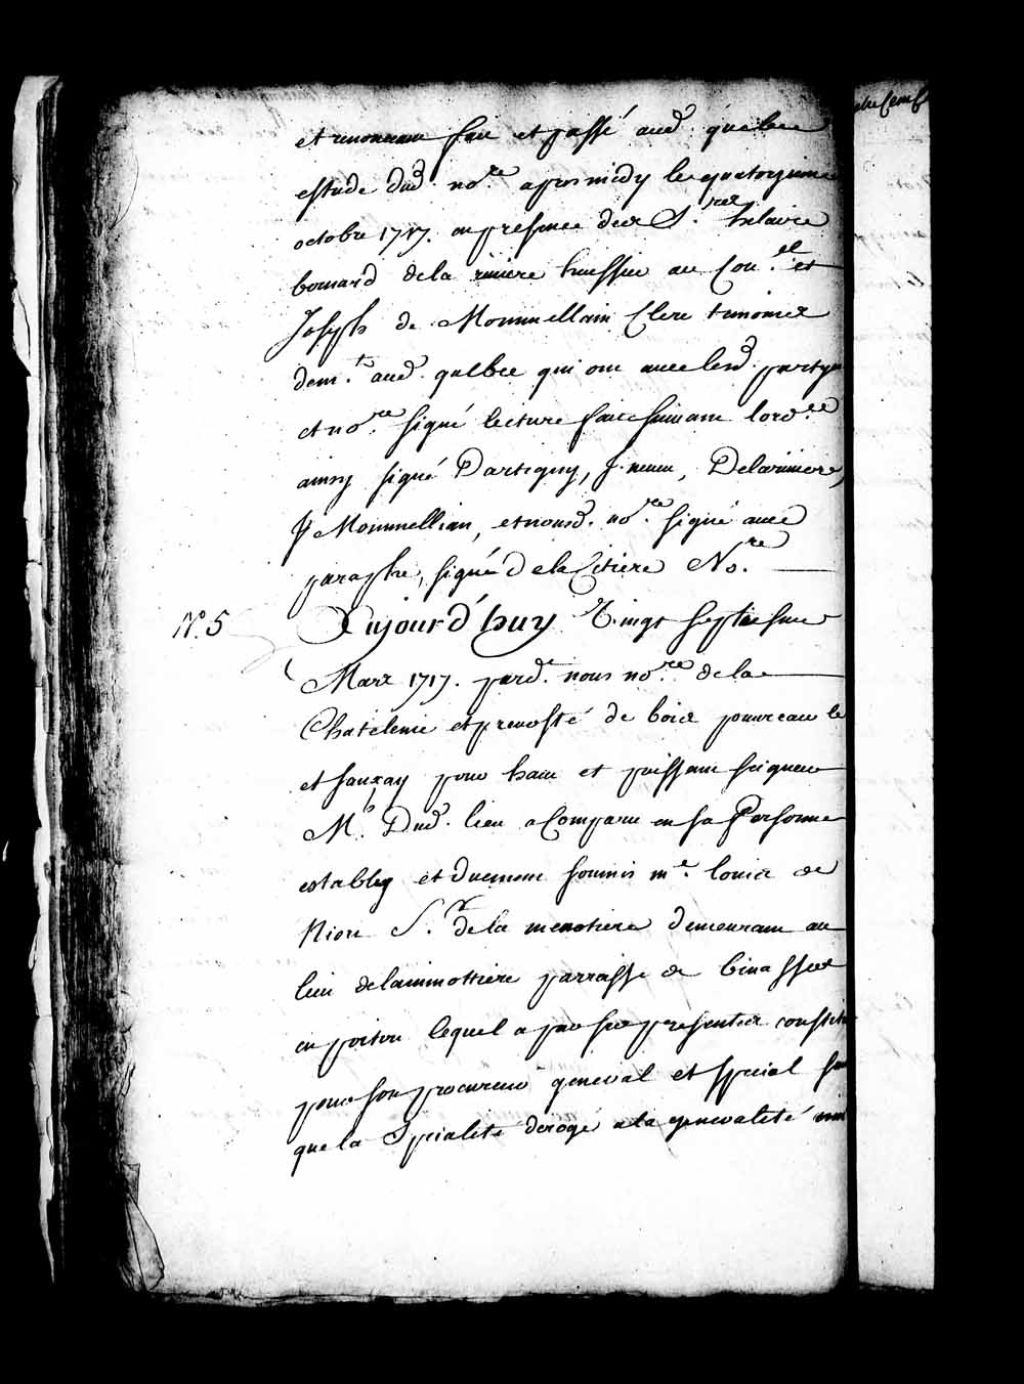 et renonceant fait et passé aud. quebec
estude dud. no.re apres midy le quatorzieme
octobre 1717. en presence des S.rs hilaire
bernard dela riviere huissier au Con.el et
Joseph de Mommellian Clerc temoins
dem.t aud. quebec qui ont avec lesd. partyes
et no.re signé lecture faite suivant lord.ce
ainsy signé Dartigny, Delariviere,
J Mommellian, et nousd. no.re signé avec
paraphe, signé dela Cetiere No.re
N.o 5 Aujourd'huy Vingt sept iesme
Mars 1717. pard.t nous no.re dela
Chatelenie et prevosté de bois pouvreau le
et sanxay pour haut et puissant seigneur
M.r Dud. lieu a Comparu en sa Personne
estably et duement soumis m.e louis de
Niort S.r dela menotiere demeurant au
lieu delaminottiere parroisse de binasset
en poitou lequel a par ses presentes constitué
pour son procureur general et special san
que la Specialité deroge ala generalité